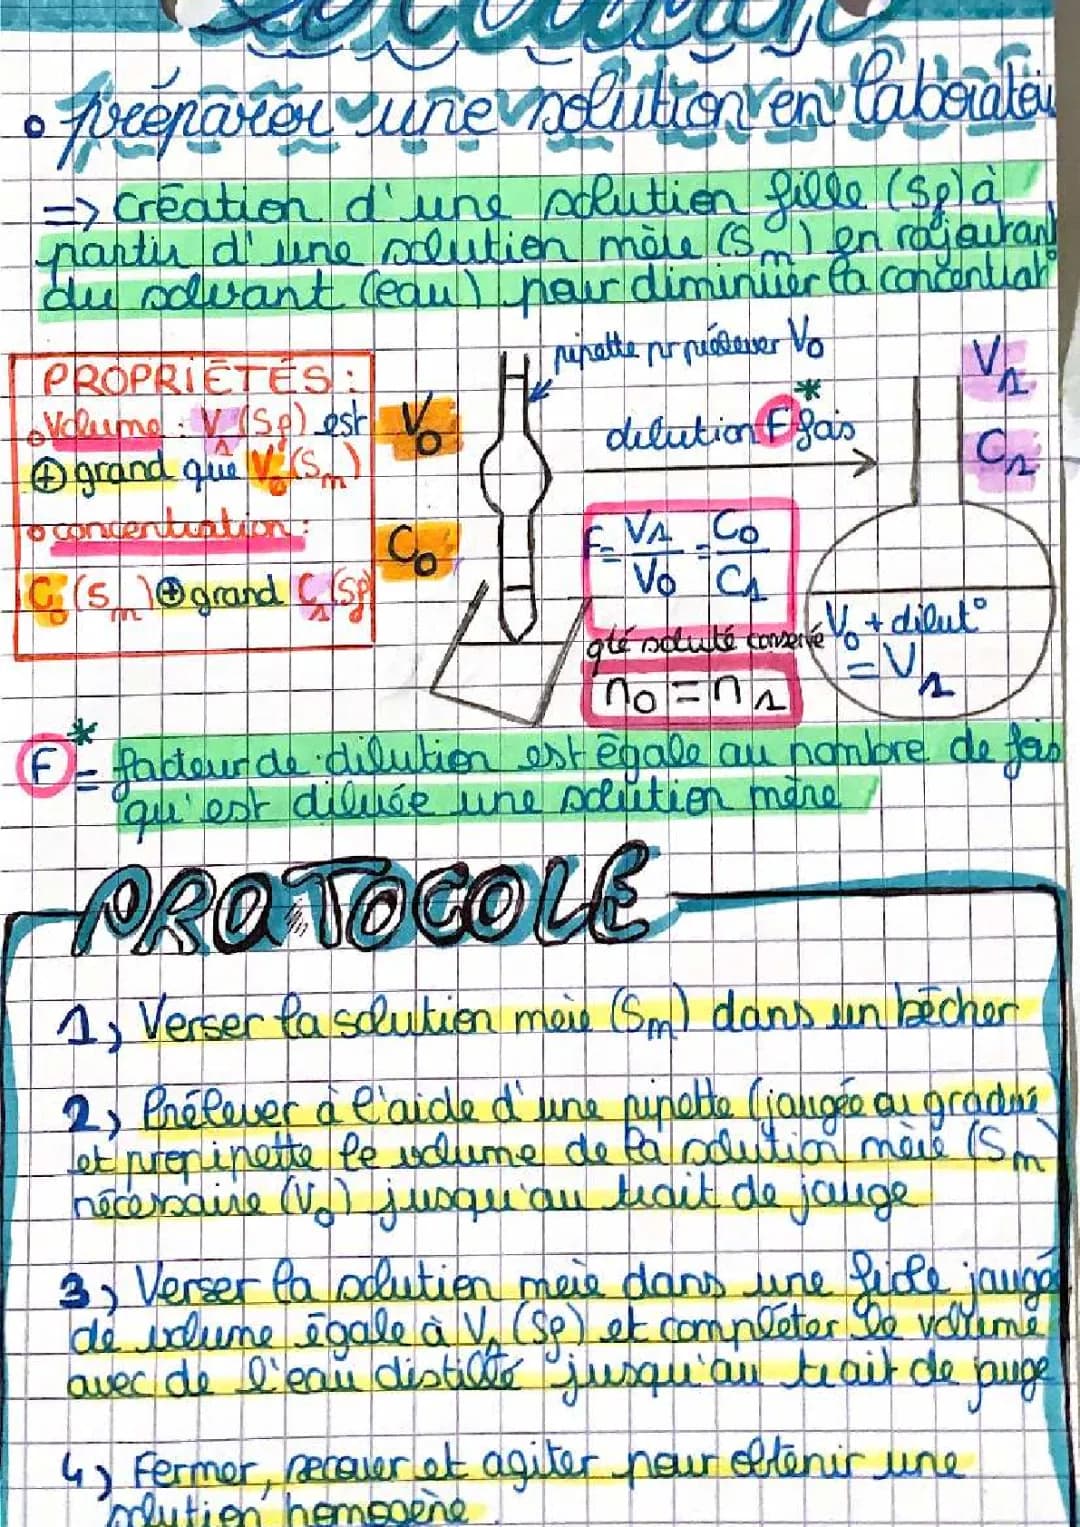 • préparer une solution en
=> création d'une solution fille (Sf) à
partir d'une solution mère (Sm) en rajoutant
du solvant (eau) pour diminuer la concentrat°
pipette pr prélever V₀
V₁
PROPRIÉTÉS :
• Volume : V₁ (Sf) est
⊕ grand que V₀ (Sm)
• concentration :
C₀ (Sm) ⊕ grand C₁ (Sf)
V₀
C₀
dilution F* fois
C₁
F = V₁/V₀ = C₀/C₁
qté soluté conservé
n₀ = n₁
V₀ + dilut°
= V₁
F* = facteur de dilution est égale au nombre de fois
qu'est diluée une solution mère
PROTOCOLE
1) Verser la solution mère (Sm) dans un bécher
2) Prélever à l'aide d'une pipette (jaugée ou gradué
et propipette le volume de la solution mère (Sm
nécessaire (V₀) jusqu'au trait de jauge
3) Verser la solution mère dans une fiole jaugé
de volume égale à V₁ (Sf) et compléter le volume
avec de l'eau distillé jusqu'au trait de jauge
4) Fermer, secouer et agiter pour obtenir une
solution homogène